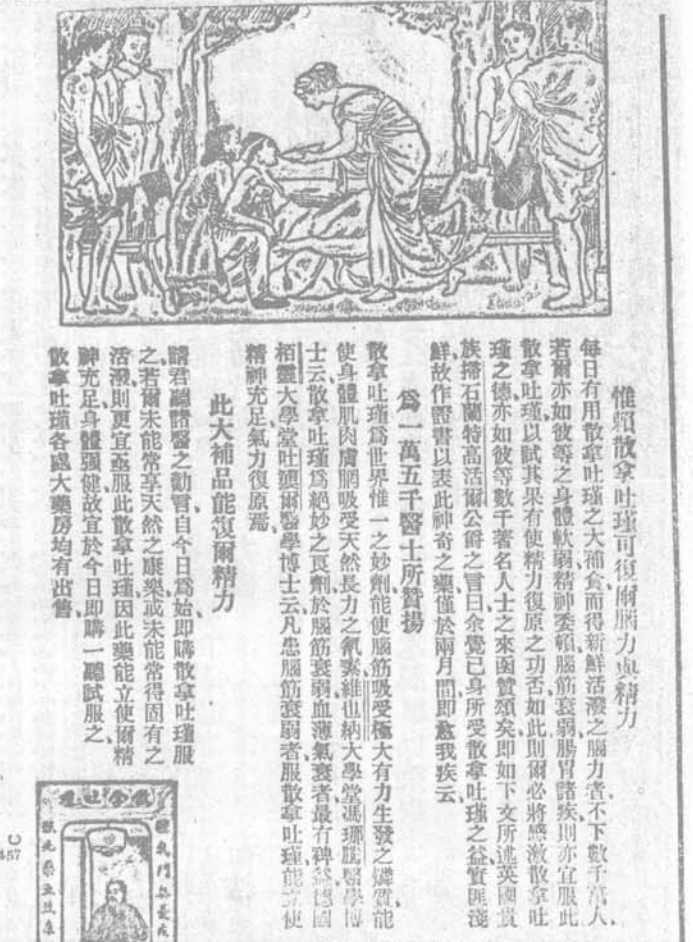 惟賴散拿吐瑾可復爾腦力與精力
每日有用散拿吐瑾之大補食而得新鮮活潑之腦力者不下數千萬人
若爾亦如彼等之身體軟弱精神委頓腦筋衰弱腸胃諸疾則亦宜服此
散拿吐瑾以試其果有使精力復原之功否如此則爾必將感激散拿吐
瑾之德亦如彼等數千著名人士之來函贊頌矣即如下文所述英國貴
族掃石蘭特高活爾公爵之言曰余覺已身所受散拿吐瑾之益實匪淺
鮮故作證書以表此神奇之藥僅於兩月間即愈我疾云
爲一萬五千醫士所贊揚
散拿吐瑾爲世界惟一之妙劑能使腦筋吸受極大有力生發之燐質能
使身體肌肉膚膶吸受天然長力之氮素維也納大學堂馮瑘騰醫學博
士云散拿吐瑾爲絕妙之良劑於腦筋衰弱血薄氣衰者最有裨益德國
栢靈大學堂吐爾醫學博士云凡患腦筋衰弱者服散拿吐瑾能立使
精神充足氣力復原焉
此大補品能復爾精力
請君聽諸醫之勸言自今日爲始即購散拿吐瑾服
之若爾未能常享天然之康樂或未能常得固有之
活潑則更宜亟服此散拿吐瑾因此藥能立使爾精
神充足身體强健故宜於今日即購一聽試服之
散拿吐瑾各處大藥房均有出售
C
457